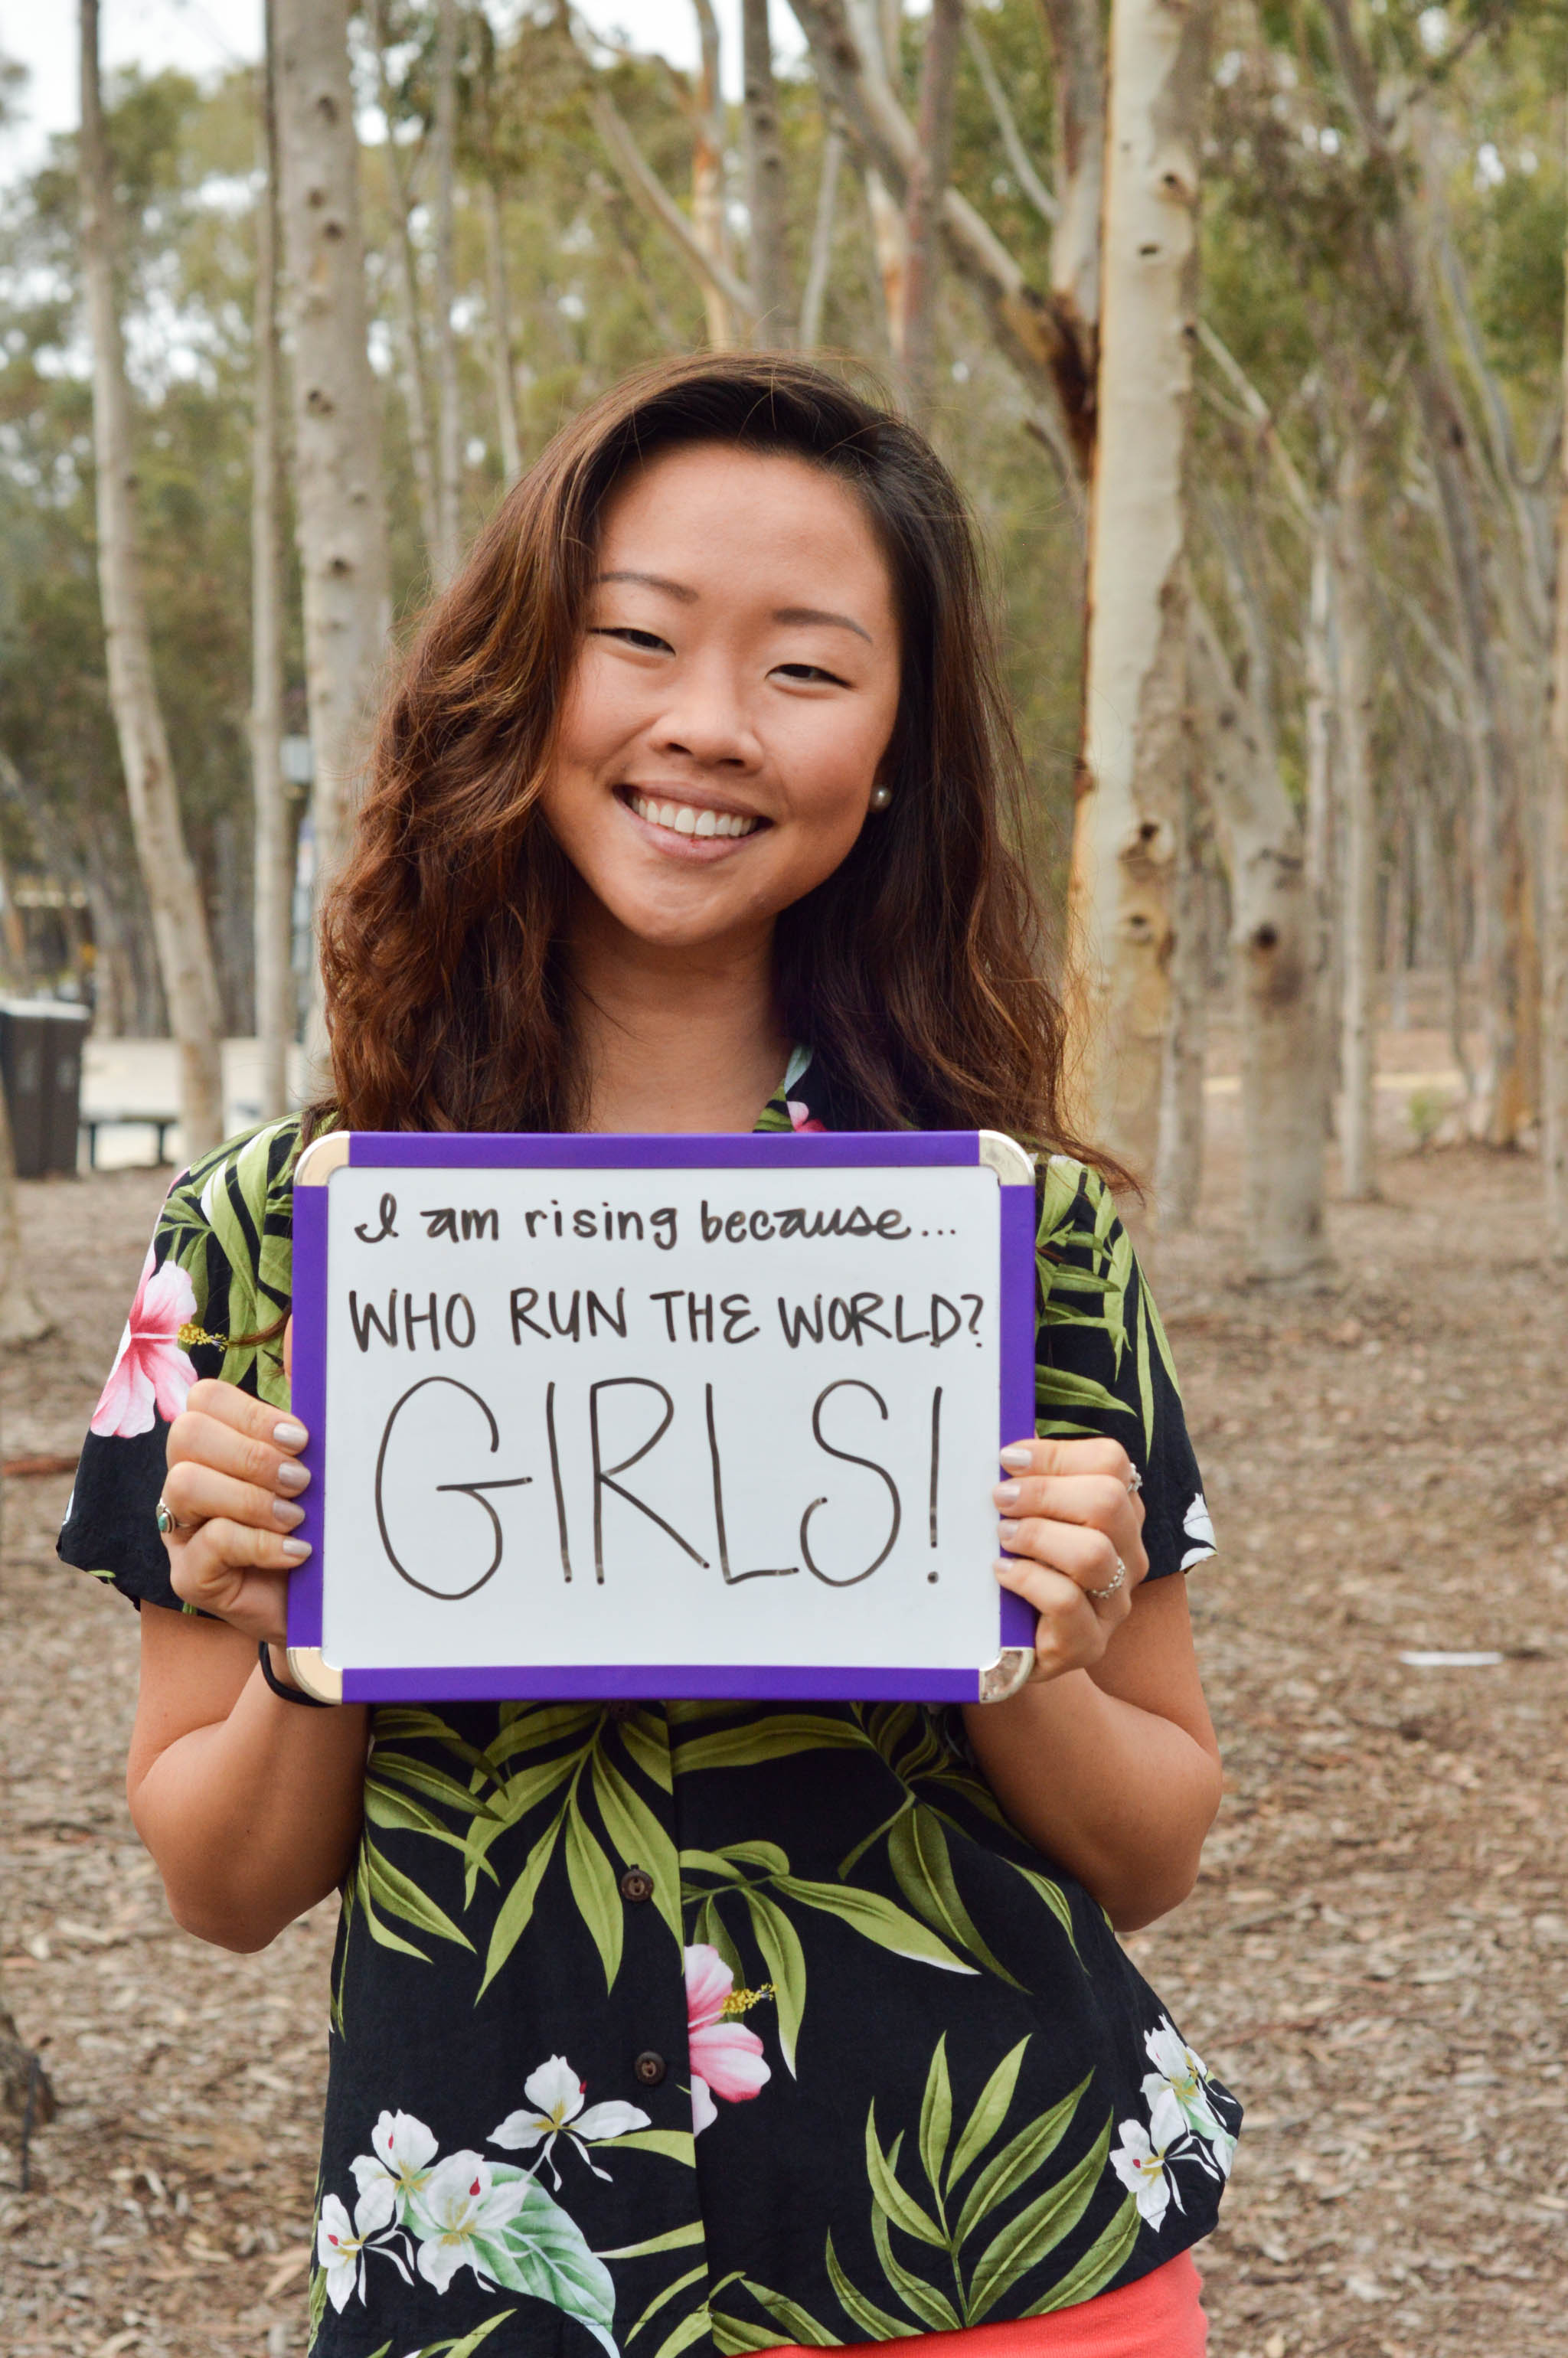 I am rising because...
WHO RUN THE WORLD?
GIRLS!